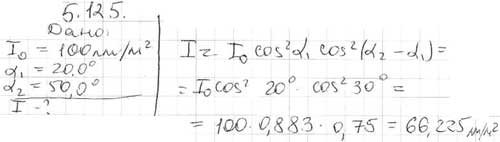 5.125.
Дано:
I₀ = 100 лм/м²
α₁ = 20,0°
α₂ = 50,0°
I - ?
I = I₀ cos²α₁ cos²(α₂ - α₁) =
= I₀ cos² 20° · cos² 30° =
= 100 · 0,883 · 0,75 = 66,225 лм/м²